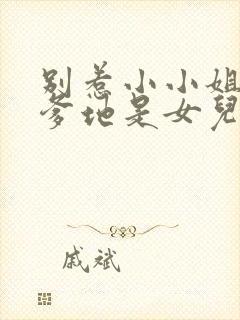 别惹小小姐
爹地是女兒
戚斌